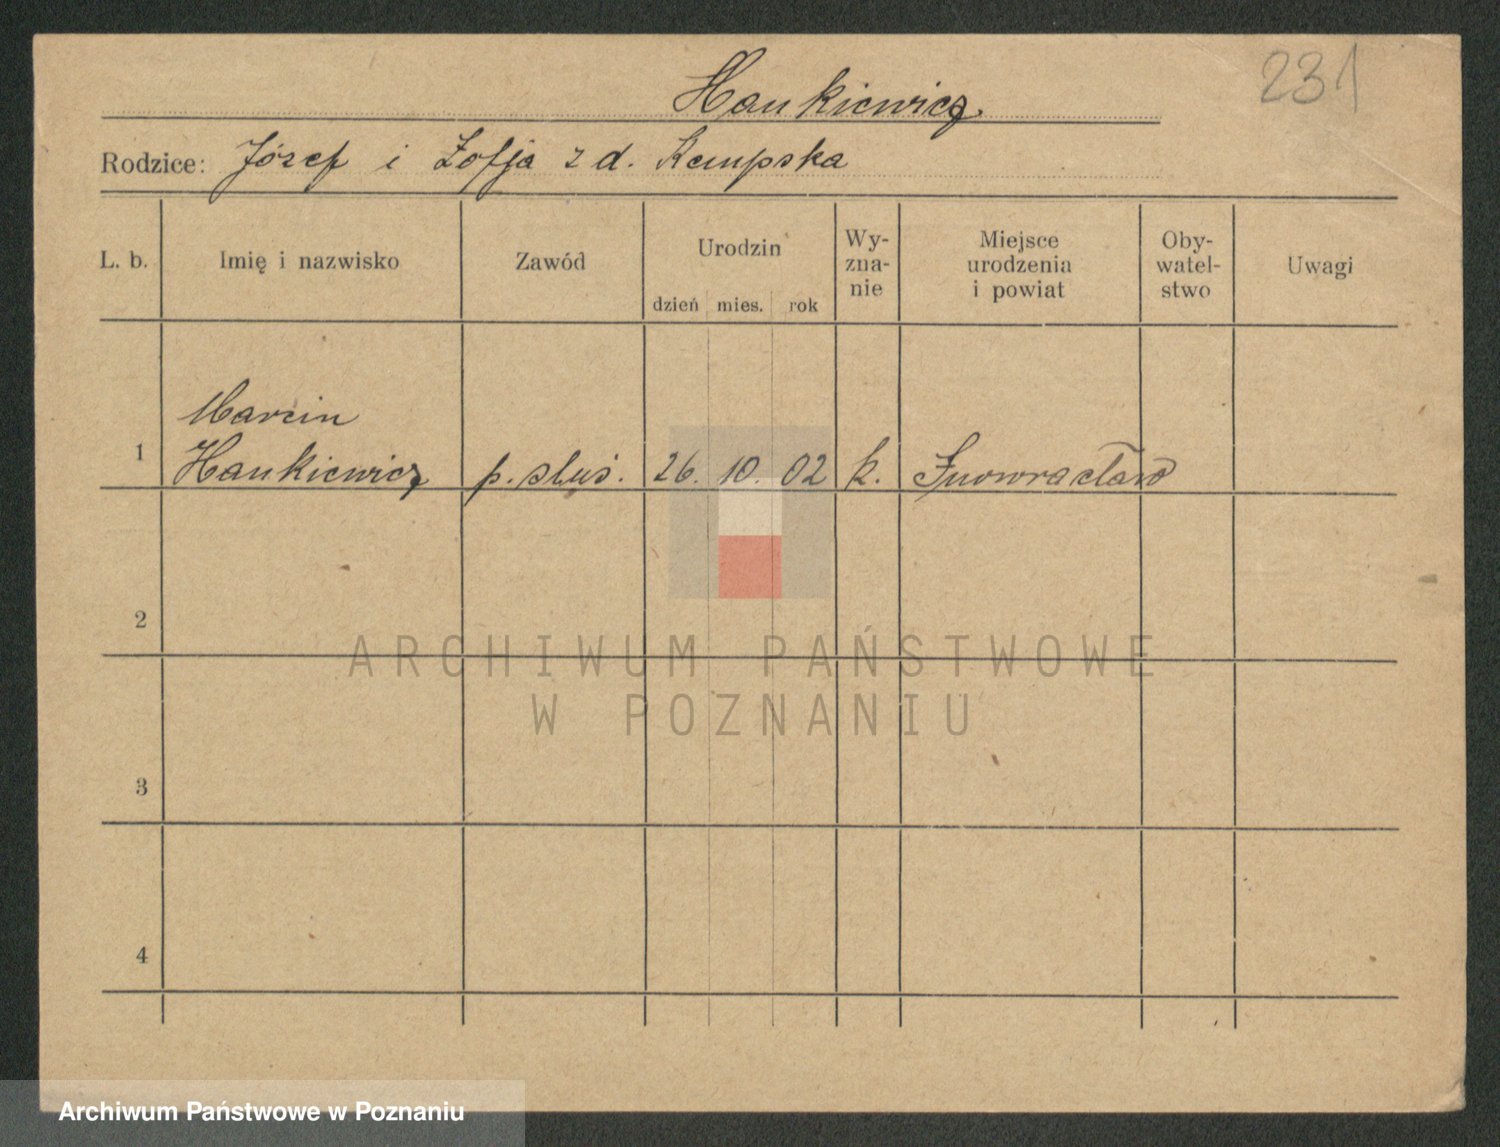 231
Hankiewicz
Rodzice: Józef i Zofja z d. Kempska
L. b. Imię i nazwisko Zawód Urodzin Wy-zna-nie Miejsce urodzenia i powiat Oby-watel-stwo Uwagi
dzień mies. rok
Marcin
1 Hankiewicz p. sluś. 26. 10. 02 k. Inowrocław
2
ARCHIWUM PAŃSTWOWE
W POZNANIU
3
4
Archiwum Państwowe w Poznaniu